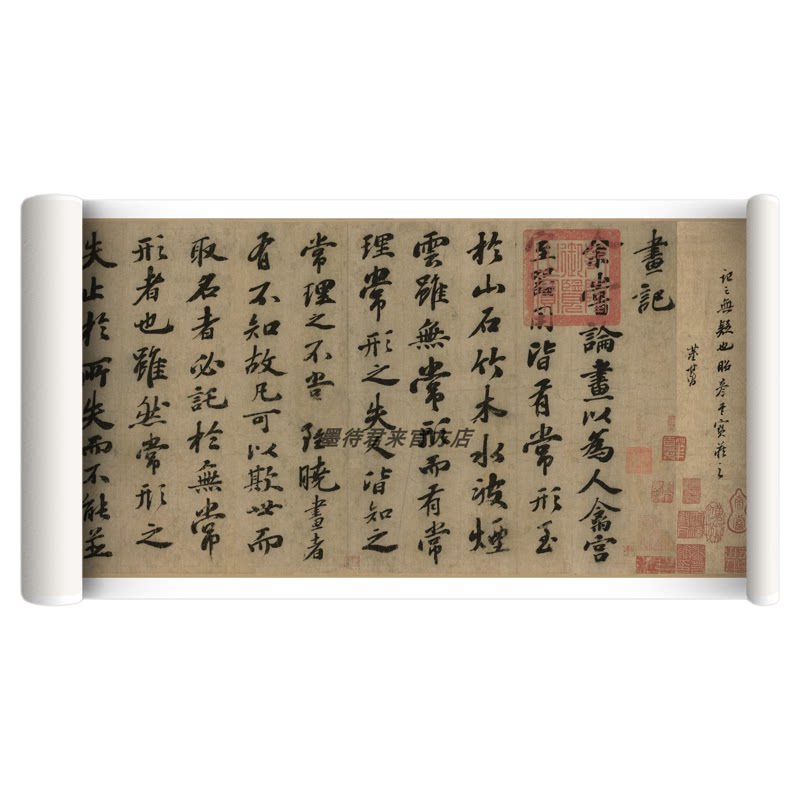 記之無疑也
畫記
余嘗論畫以為人禽宮
室器用皆有常形至
於山石竹木水波煙
雲雖無常形而有常
理常形之失人皆知之
常理之不當雖曉畫者
有不知故凡可以欺世而
取名者必託於無常
形者也雖然常形之
失止於所失而不能並
墨待君来官坊店